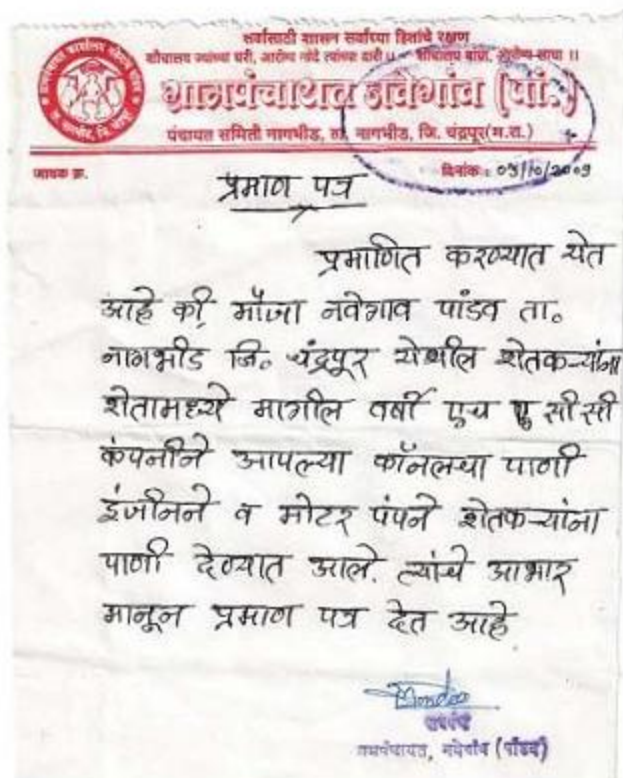 सर्वासाठी शासन सर्वांच्या हितांचे रक्षण
शौचालय ज्यांच्या घरी, आरोग्य नांदे त्यांच्या दारी ॥ शौचालय बांधा, आरोग्य साधा ॥
ग्रामपंचायत नवेगांव (पां.)
पंचायत समिती नागभीड, ता. नागभीड, जि. चंद्रपूर(म.रा.)
जावक क्र.
दिनांक : 05/10/2009
प्रमाण पत्र
प्रमाणित करण्यात येत
आहे की, मौजा नवेगाव पांडव ता॰
नागभीड जि॰ चंद्रपूर येथील शेतकऱ्यांना
शेतामध्ये मागील वर्षी एच ए सी सी
कंपनीने आपल्या कॅनलचा पाणी
इंजीनने व मोटर पंपने शेतकऱ्यांना
पाणी देण्यात आले. त्यांचे आभार
मानून प्रमाण पत्र देत आहे.
सरपंच
ग्रामपंचायत, नवेगांव (पांडव)